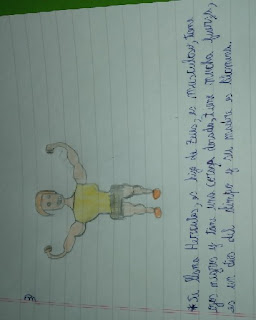 3)
* Se llama Hercules, es hijo de Zeus, es musculoso, tiene
ojos negros y tiene una coraza dorada, tiene mucha fuerza,
es un dios del olimpo y su madre es Alcmena.